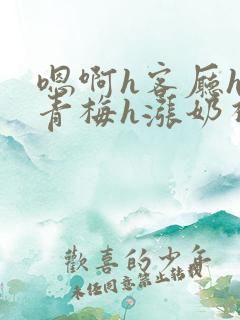 嗯啊h客厅h
青梅h涨奶
歡喜的少年
未任同意禁止转载